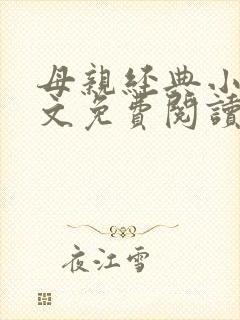 母親經典小
文免費閱讀
夜江雪